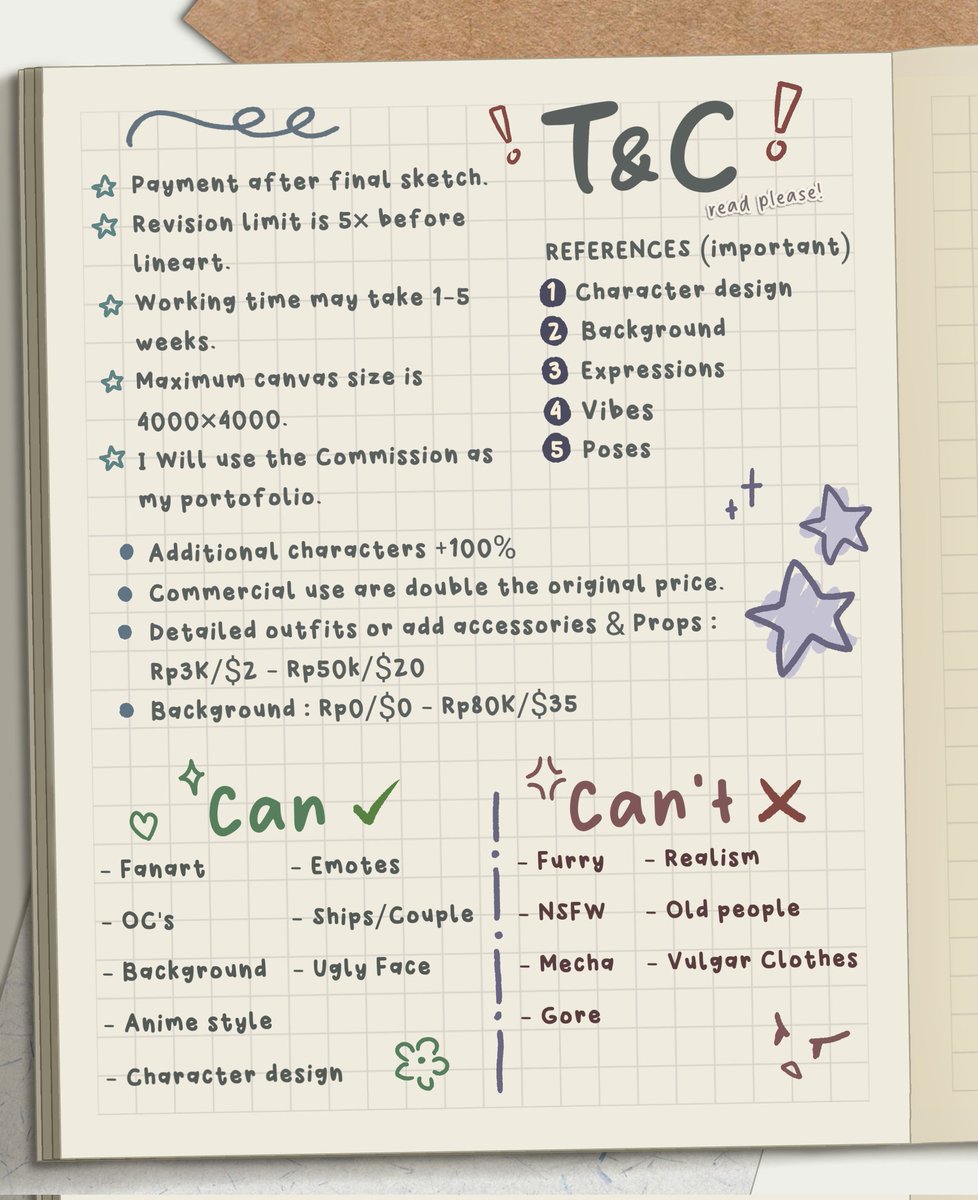 ! T&C !
read please!
Payment after final sketch.
Revision limit is 5x before
lineart.
Working time may take 1-5
weeks.
Maximum canvas size is
4000×4000.
I Will use the Commission as
my portofolio.
REFERENCES (important)
1 Character design
2 Background
3 Expressions
4 Vibes
5 Poses
Additional characters +100%
Commercial use are double the original price.
Detailed outfits or add accessories & Props :
Rp3K/$2 - Rp50k/$20
Background : Rp0/$0 - Rp80K/$35
Can ✓
- Fanart
- OC's
- Background
- Anime style
- Character design
- Emotes
- Ships/Couple
- Ugly Face
Can't X
- Furry
- NSFW
- Mecha
- Gore
- Realism
- Old people
- Vulgar Clothes